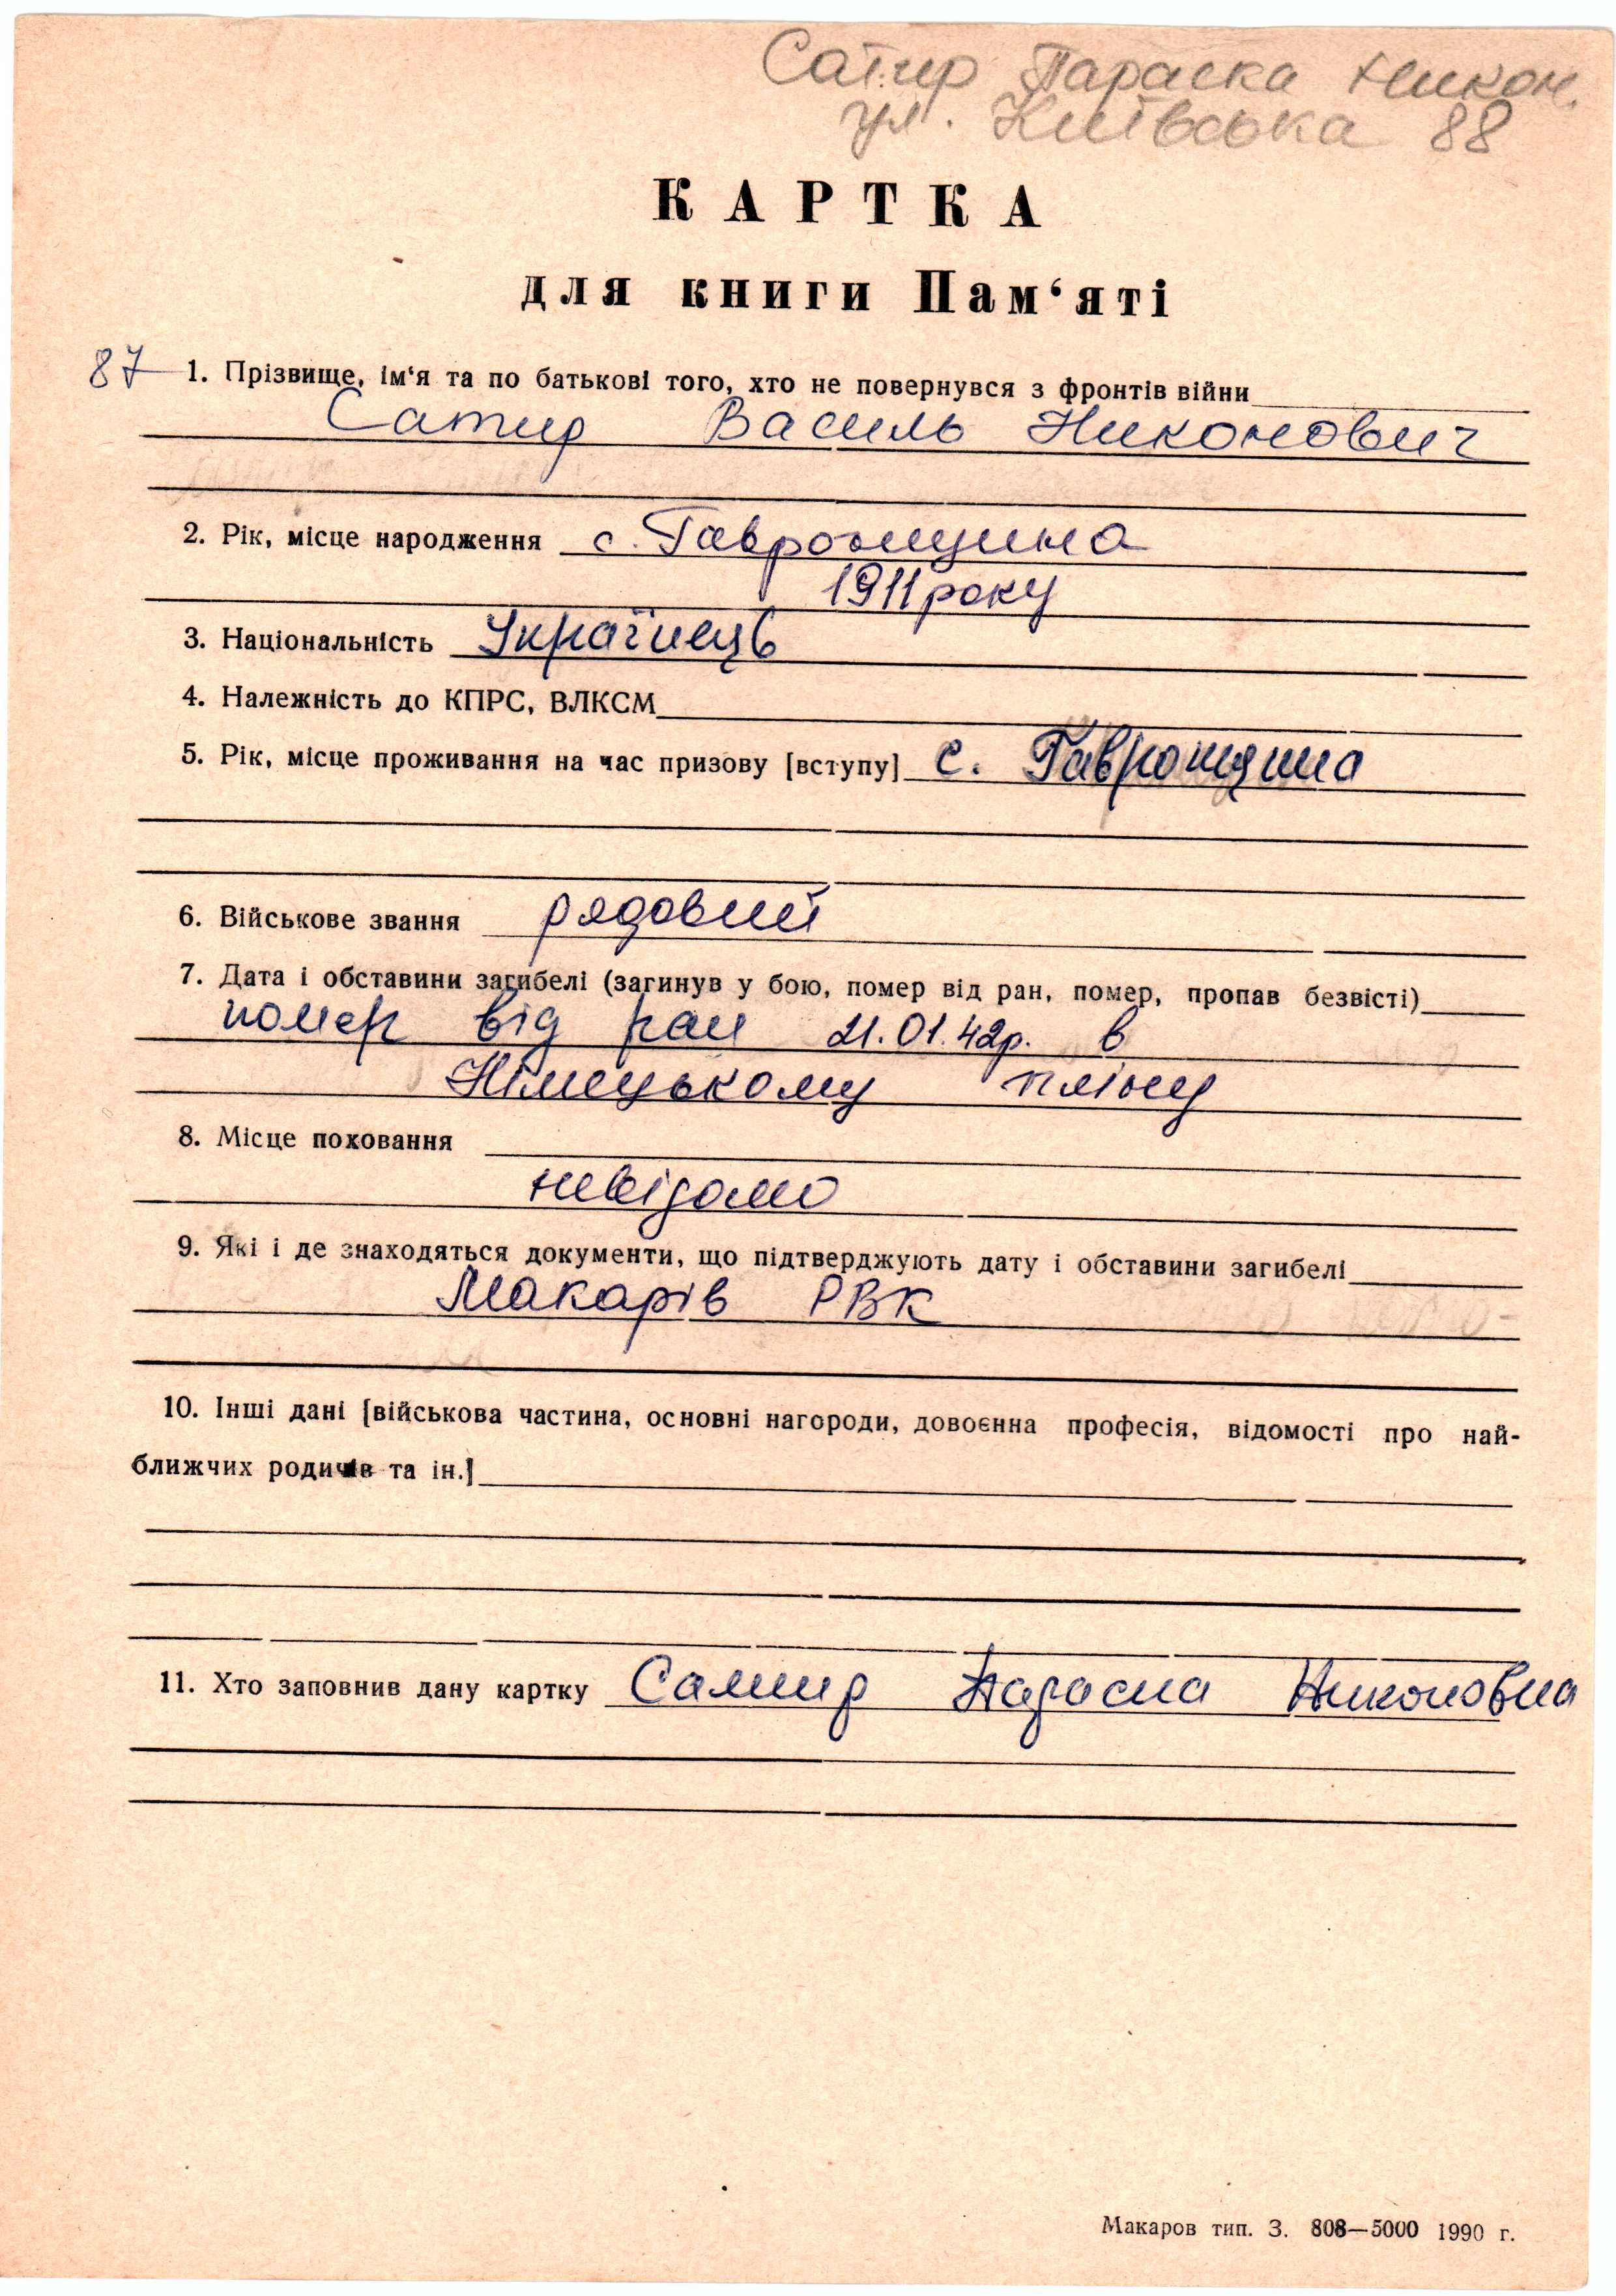 Сатир Параска Никон.
ул. Київська 88
КАРТКА
для книги Пам‘яті
87 1. Прізвище, ім‘я та по батькові того, хто не повернувся з фронтів війни
Сатир Василь Никонович
2. Рік, місце народження с. Гавронщина
1911 року
3. Національність Українець
4. Належність до КПРС, ВЛКСМ
5. Рік, місце проживання на час призову [вступу] с. Гавронщина
6. Військове звання рядовий
7. Дата і обставини загибелі (загинув у бою, помер від ран, помер, пропав безвісті)
помер від ран 21.01.42р. в
Німецькому пліну
8. Місце поховання
невідомо
9. Які і де знаходяться документи, що підтверджують дату і обставини загибелі
Макарів РВК
10. Інші дані [військова частина, основні нагороди, довоєнна професія, відомості про най-
ближчих родичів та ін.]
11. Хто заповнив дану картку Сатир Параска Никоновна
Макаров тип. З. 808—5000 1990 г.